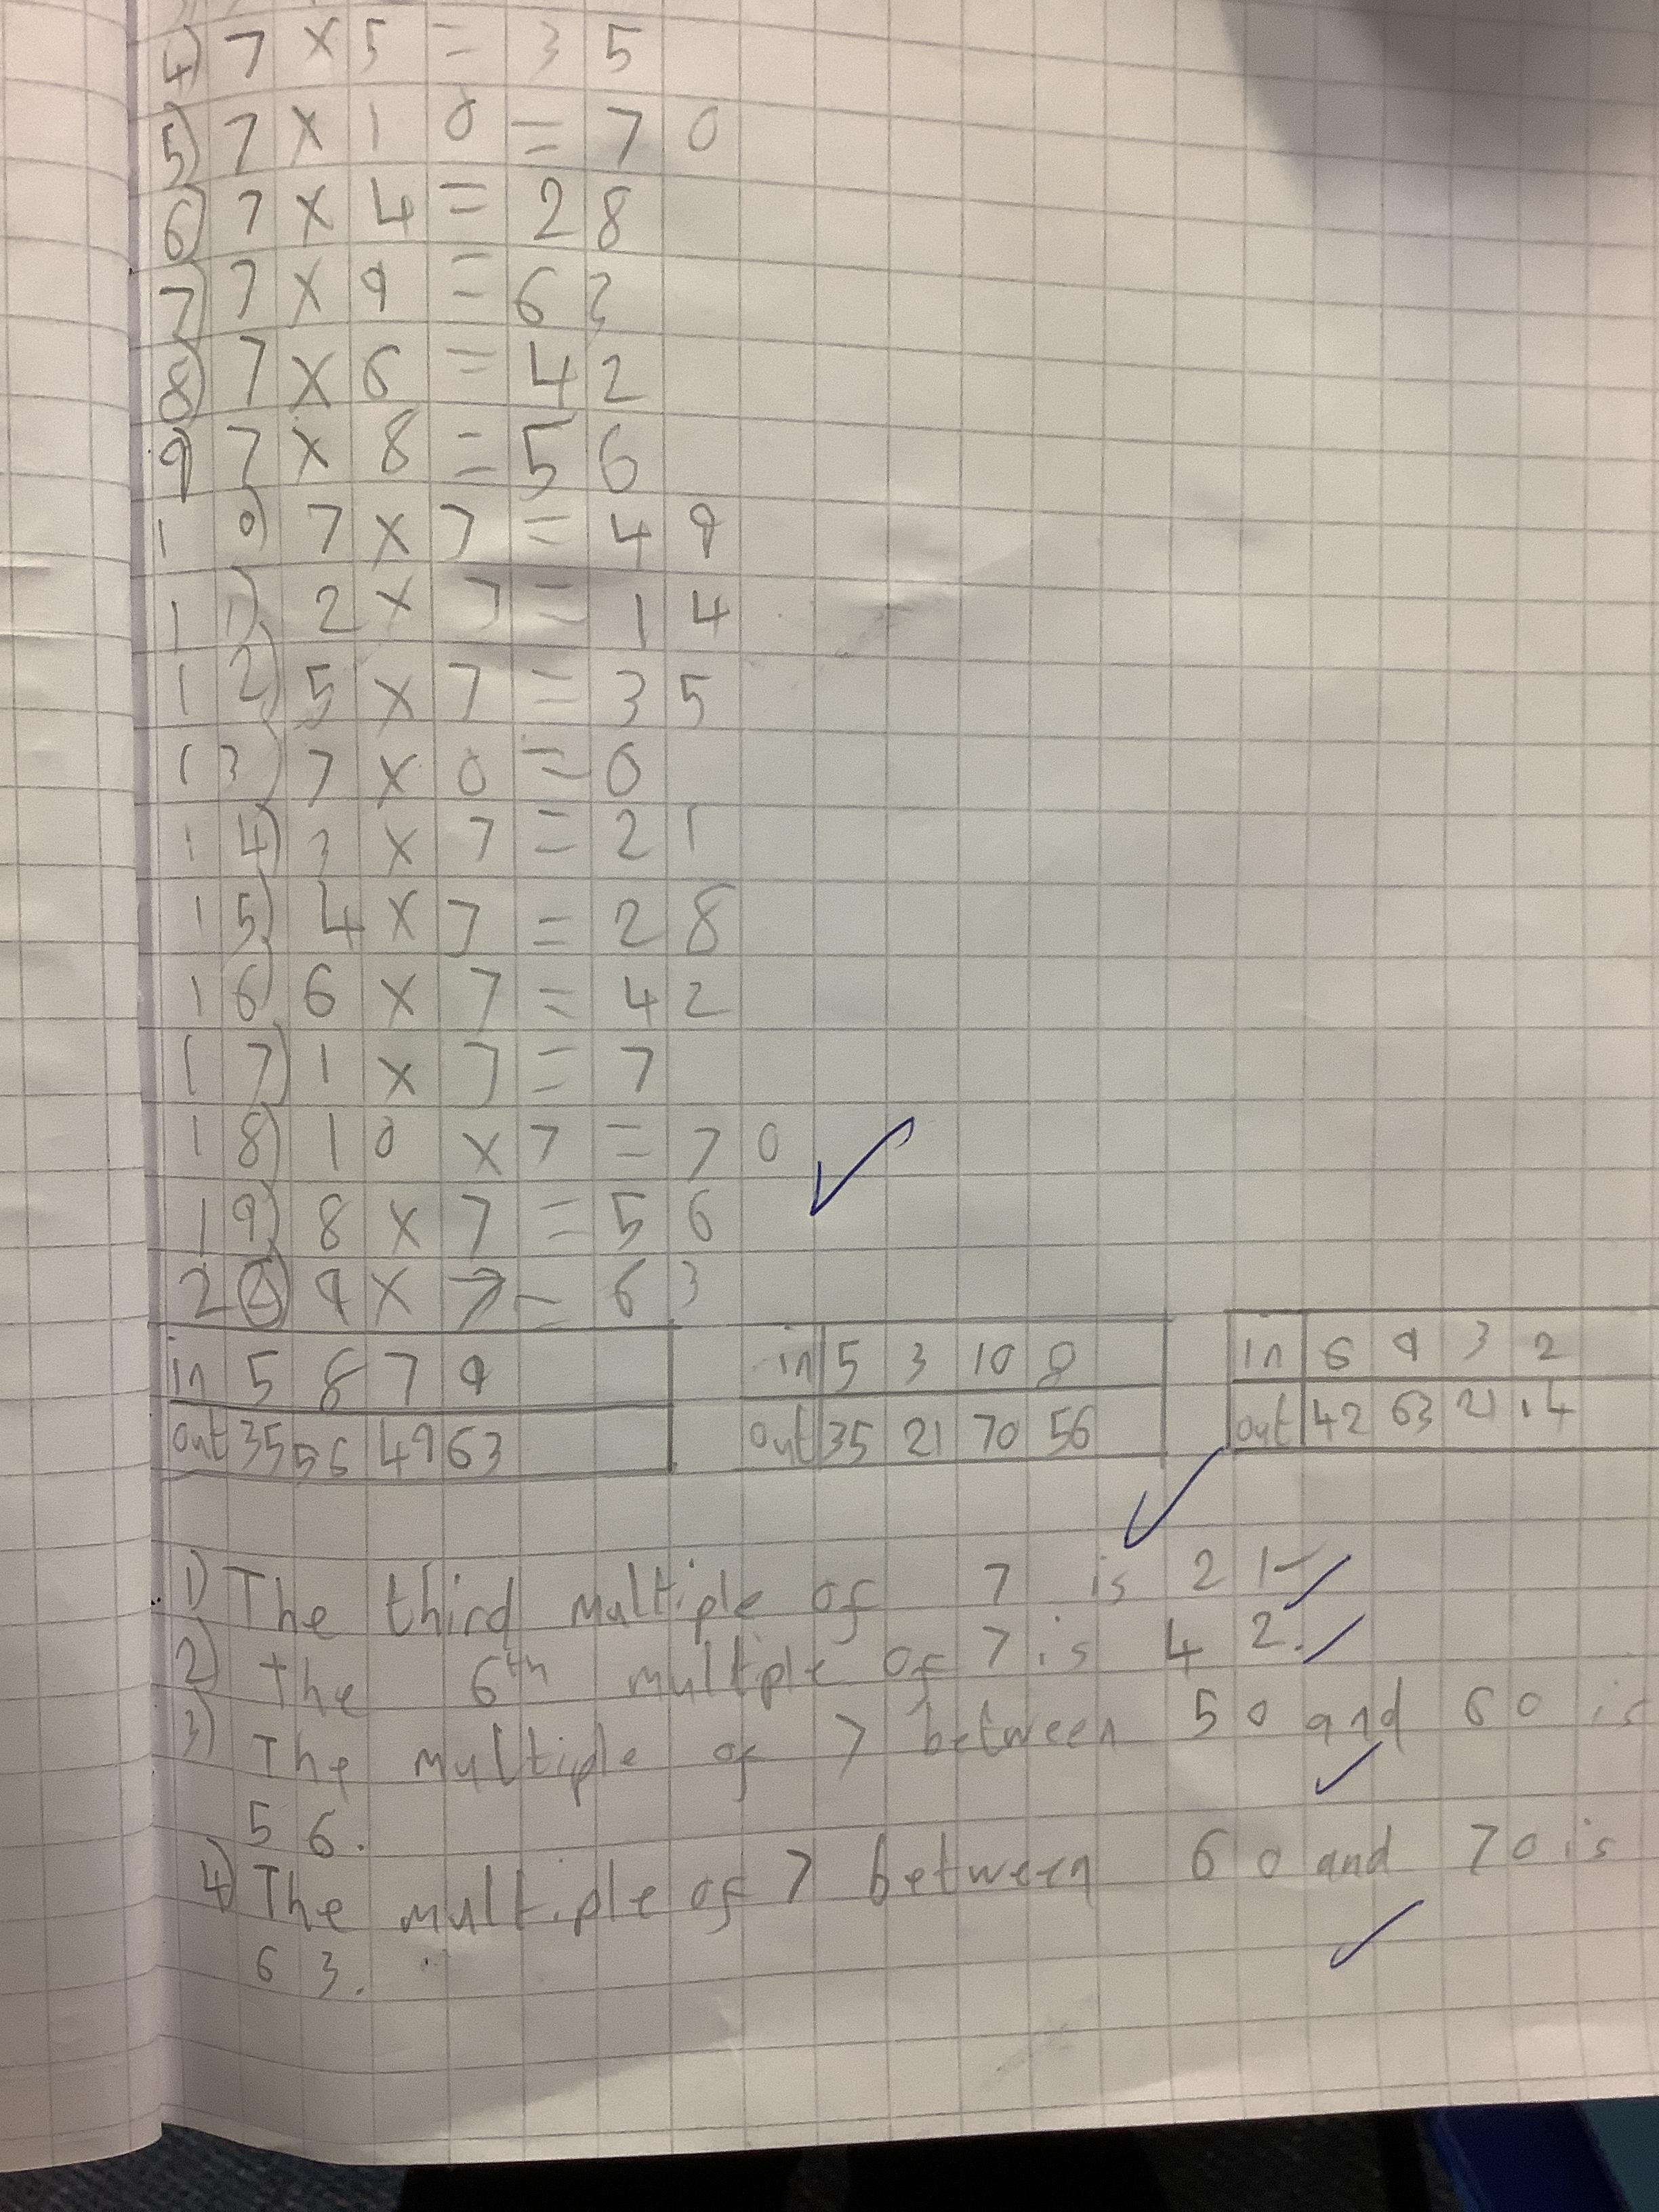 4) 7 × 5 = 35
5) 7 × 10 = 70
6) 7 × 4 = 28
7) 7 × 9 = 63
8) 7 × 6 = 42
9) 7 × 8 = 56
10) 7 × 7 = 49
11) 2 × 7 = 14
12) 5 × 7 = 35
13) 7 × 0 = 0
14) 3 × 7 = 21
15) 4 × 7 = 28
16) 6 × 7 = 42
17) 1 × 7 = 7
18) 10 × 7 = 70
19) 8 × 7 = 56
20) 9 × 7 = 63
in 5 8 7 9
out 35 56 49 63
in 5 3 10 8
out 35 21 70 56
in 6 9 3 2
out 42 63 21 14
1) The third multiple of 7 is 21
2) the 6th multiple of 7 is 42.
3) The multiple of 7 between 50 and 60 is
56.
4) The multiple of 7 between 60 and 70 is
63.